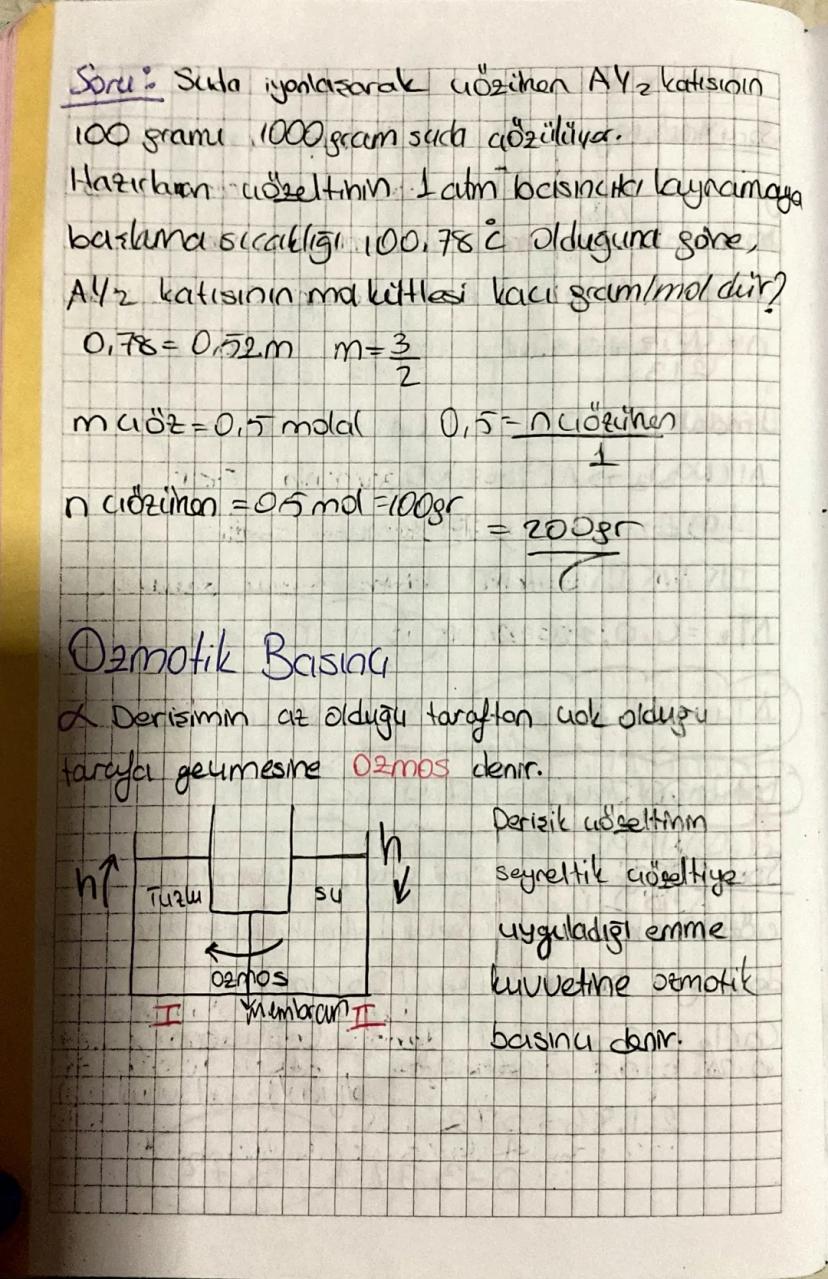 Soru: Suda iyonlaşarak çözünen AY2 katısının
100 gramı 1000 gram suda çözülüyor.
Hazırlanan çözeltinin 1 atm basınçtaki kaynamaya
başlama sıcaklığı 100,78 °C olduğuna göre,
AY2 katısının mol kütlesi kaç gram/mol dür?
0,78 = 0,52 m m = 3/2
m çöz = 0,5 molal 0,5 = n çözünen / 1
n çözünen = 0,5 mol = 100gr
= 200gr
Ozmotik Basınç
Derişimin az olduğu taraftan çok olduğu
tarafa geçmesine Ozmos denir.
h Tuzlu su h
ozmos
I Membran II
Derişik çözeltinin
seyreltik çözeltiye
uyguladığı emme
kuvvetine ozmotik
basınç denir.